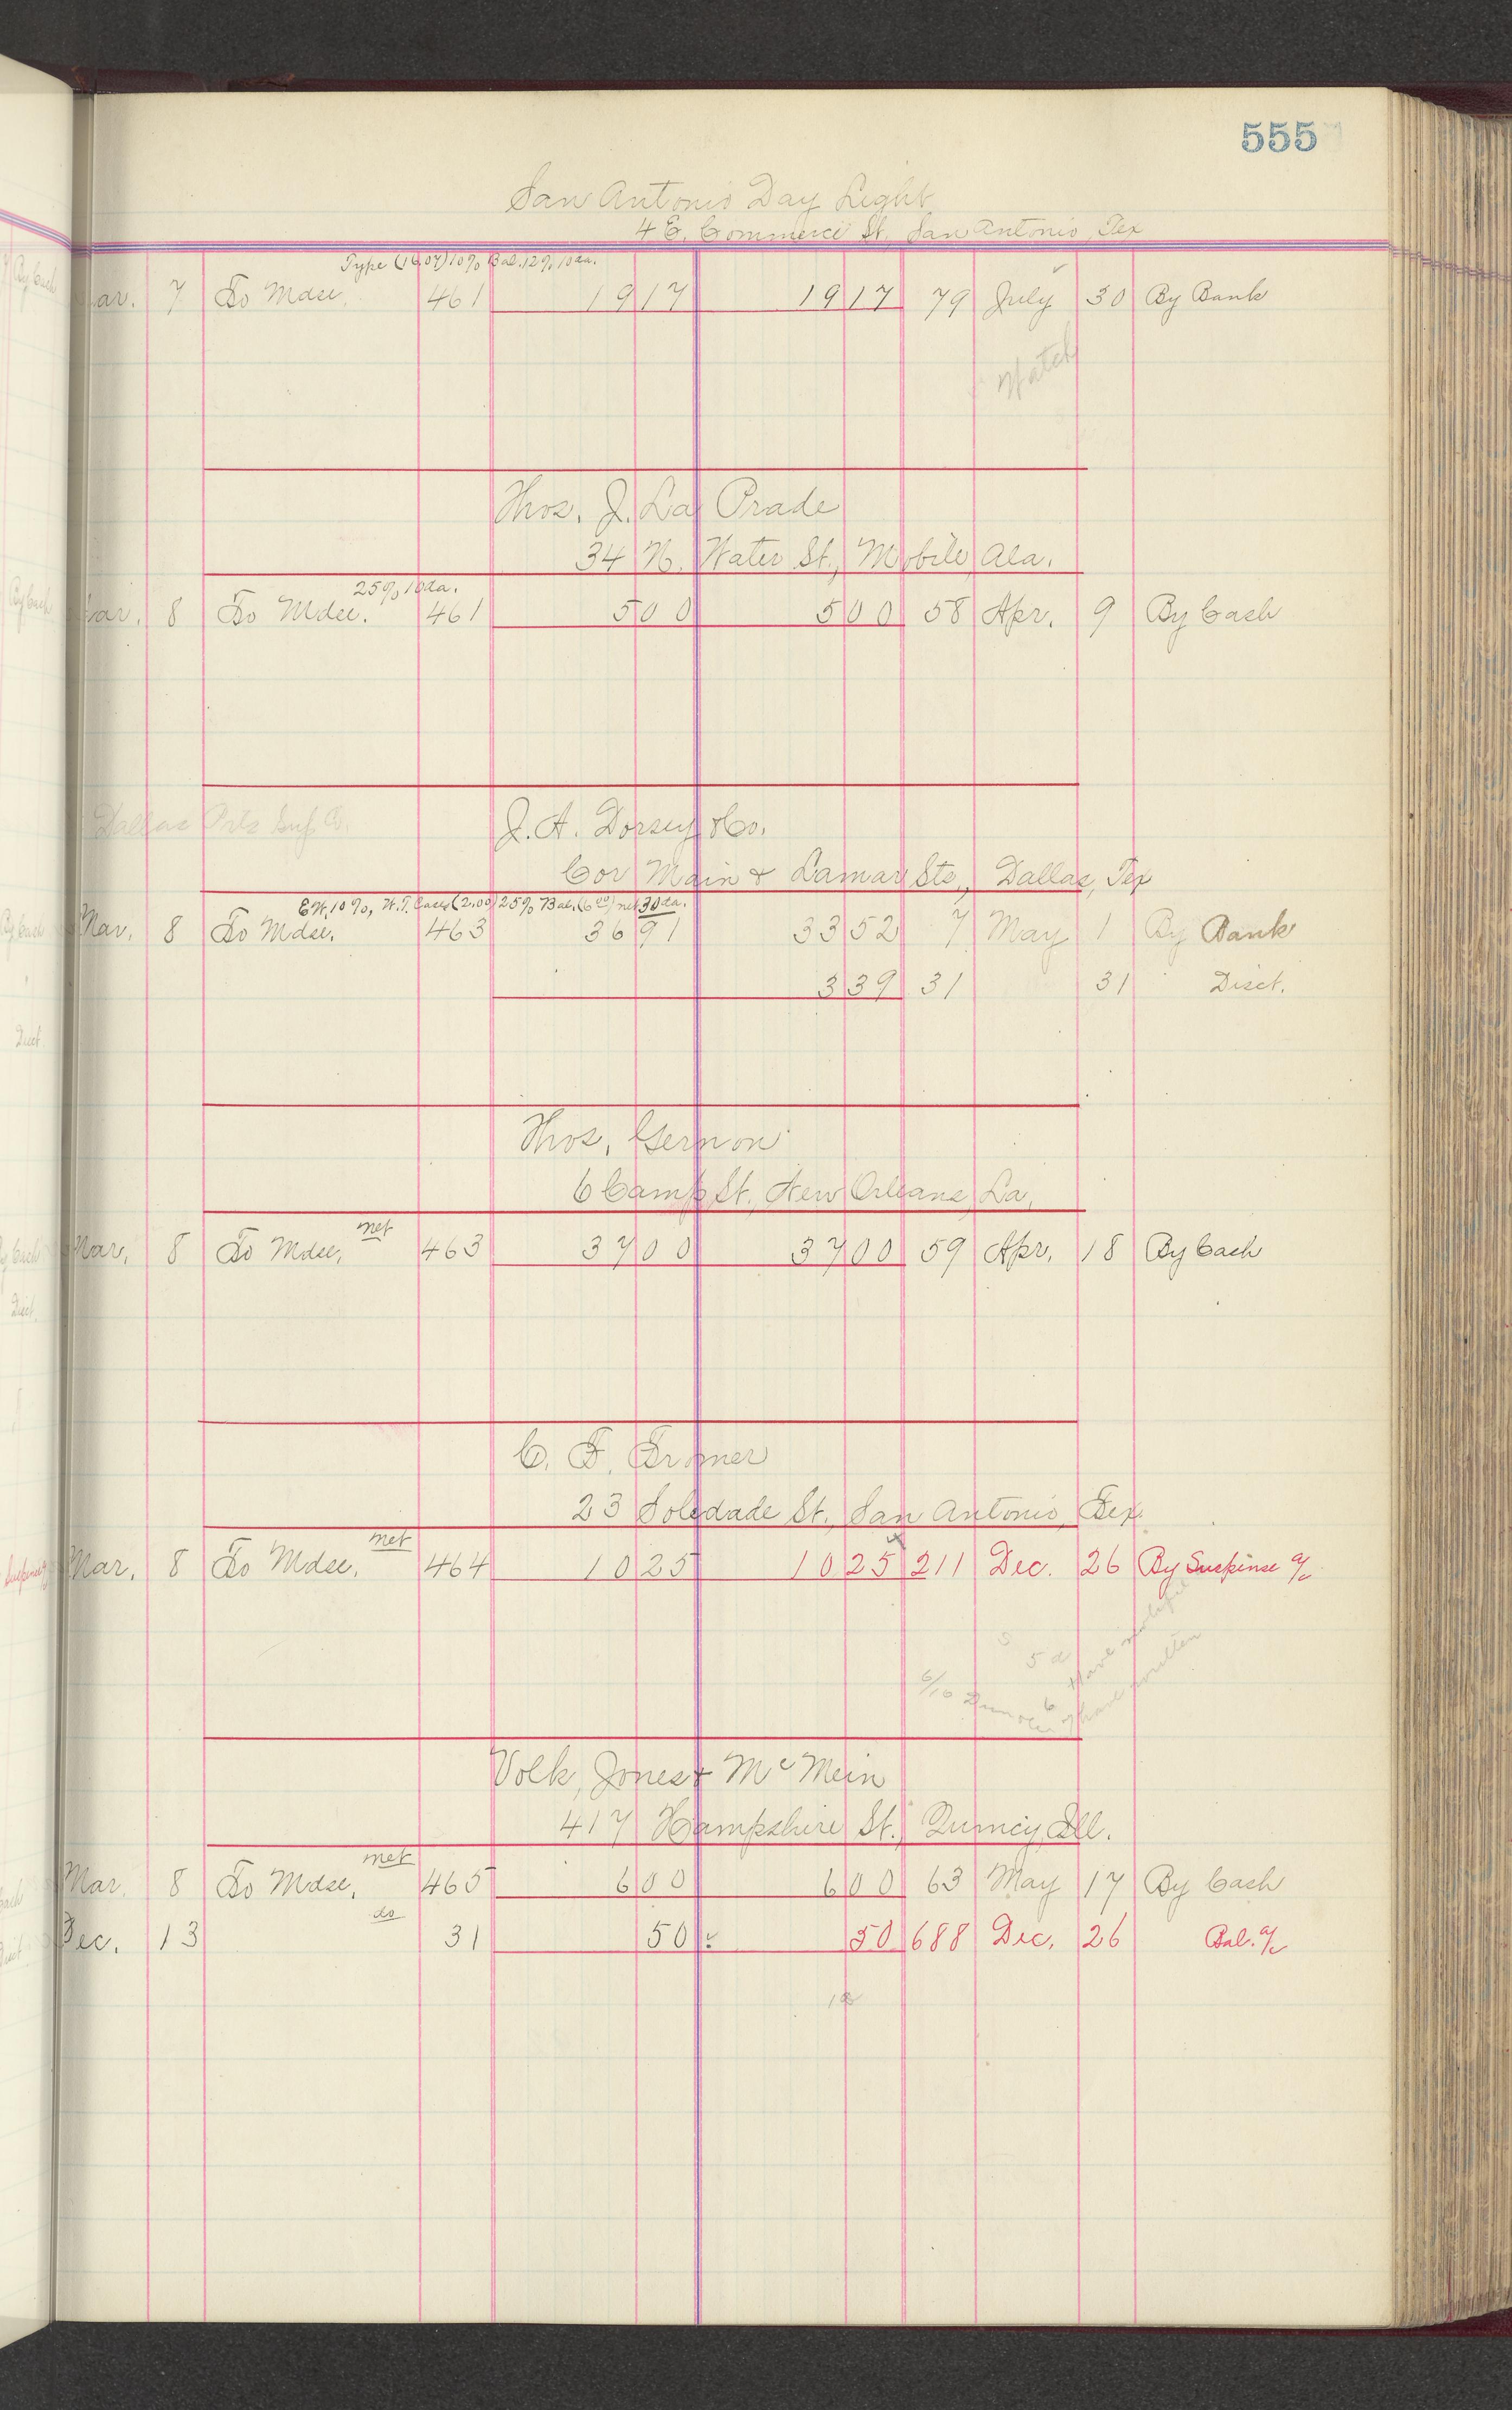 555
San Antonio Day Light
4 E. Commerce St., San Antonio, Tex
Type (16.07) 10% Bal. 12% 10 da.
Mar. 7 To Mdse. 461 19 17 19 17 79 July 30 By Bank
Watch
Thos. J. La Prade
34 N. Water St., Mobile, Ala.
25% 10 da.
Mar. 8 To Mdse. 461 5 00 5 00 58 Apr. 9 By Cash
Dallas Ptrs Sup Co. J. A. Dorsey & Co.
Cor Main & Lamar Sts., Dallas, Tex
E.W. 10%, W.T. Cases (2.00) 25% Bal. (6 00) net 30 da.
Mar. 8 To Mdse. 463 36 91 33 52 7 May 1 By Bank
3 39 31 31 Disct.
Thos. Gernon
6 Camp St., New Orleans, La.
net
Mar. 8 To Mdse. 463 37 00 37 00 59 Apr. 18 By Cash
C. F. Fromer
23 Soledade St., San Antonio, Tex.
net
Mar. 8 To Mdse. 464 10 25 10 25 211 Dec. 26 By Suspense a/c
Have
6/10 I have written
Volk, Jones & McMein
417 Hampshire St., Quincy, Ill.
net
Mar. 8 To Mdse. 465 6 00 6 00 63 May 17 By Cash
do
Dec. 13 31 50 50 688 Dec. 26 Bal. a/c